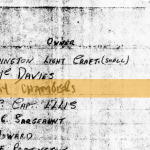 OWNER
NINGTON LIGHT CRAFT (SMALL)
DAVIES
CHAMBERS
CAPT. ELLIS
G. SARGEAUNT
OWARD